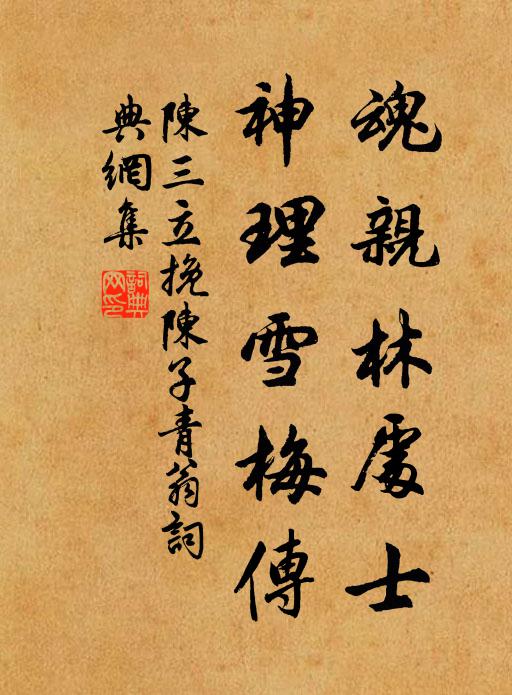 魂親林處士
神理雪梅傳
陳三立挽陳子青翁詞
典網集
詞典
网印